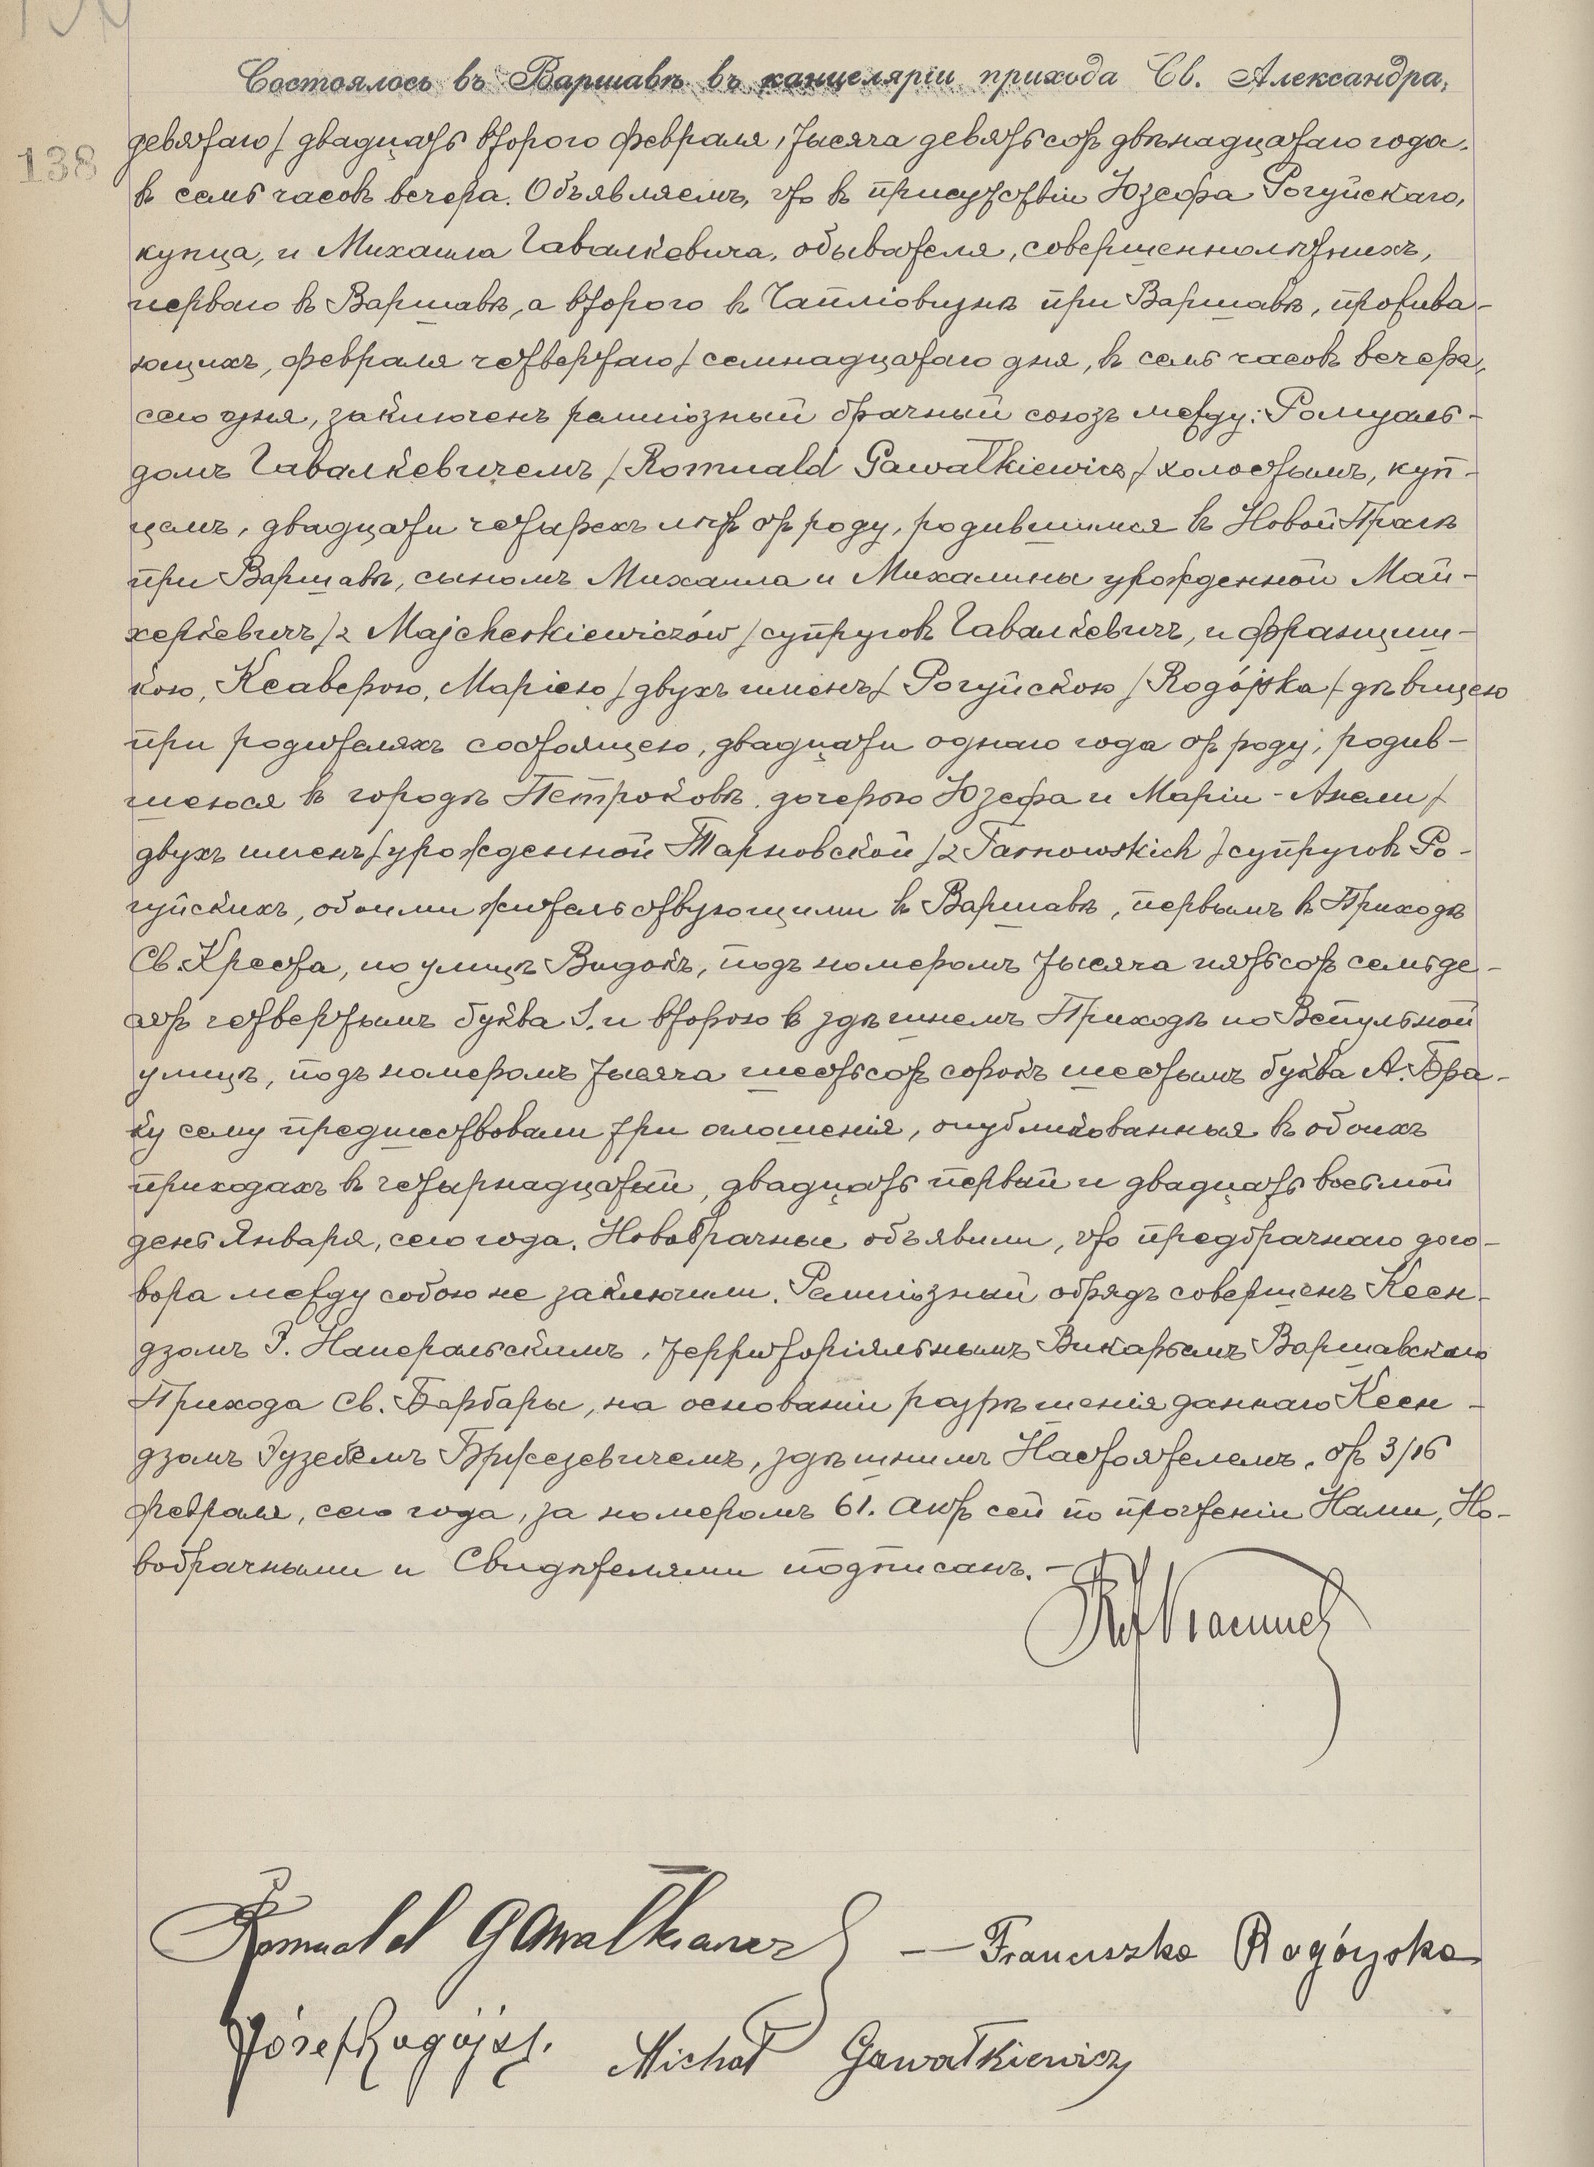 Состоялось въ Варшавѣ въ канцеляріи прихода Св. Александра,
138
девятаго/ двадцать второго февраля, тысяча девятьсот двѣнадцатаго года.
в семь часовъ вечера. Объявляемъ, что в присутствіи Юзефа Рогуйскаго,
купца, и Михаила Гавалкевича, обывателя, совершеннолѣтнихъ,
перваго в Варшавѣ, а второго в Чапліовизнѣ при Варшавѣ, прожива-
ющихъ, февраля четвертаго/ семнадцатаго дня, в семь часовъ вечера,
сего дня, заключенъ религіозный брачный союзъ между: Ромуаль-
домъ Гавалкевичемъ /Romuald Gawałkiewicz/ холостымъ, куп-
цемъ, двадцати четырехъ лѣт от роду, родившимся в Новой Прагѣ
при Варшавѣ, сыномъ Михаила и Михалины урожденной Май-
херкевичъ /z Majcherkiewiczów/ супруговъ Гавалкевичъ, и Францишк-
кою, Ксаверою, Маріею /двухъ именъ/ Рогуйскою /Rogójska/ дѣвицею
при родителяхъ состоящею, двадцати однаго года от роду, родив-
шеюся в городѣ Петроковѣ, дочерью Юзефа и Маріи-Анели/
двухъ именъ/ урожденной Тарновской /z Tarnowskich/ супруговъ Ро-
гуйскихъ, обоими жительствующими в Варшавѣ, первымъ в Приходѣ
Св. Креста, по улицѣ Видокъ, подъ номеромъ тысяча пятьсот семьде-
сят четвертымъ буква І. и второю в здѣшнемъ Приходѣ по Вспульной
улицѣ, подъ номеромъ тысяча шестьсот сорокъ шестымъ буква А. Бра-
ку сему предшествовали три оглошенія, опубликованныя въ обоихъ
приходахъ в четырнадцатый, двадцать первый и двадцать восьмой
день Января, сего года. Новобрачные объявили, что предбрачнаго дого-
вора между собою не заключили. Религіозный обрядъ совершенъ Ксен-
дзомъ З. Наперальскимъ, территоріяльнымъ Викарьемъ Варшавскаго
Прихода Св. Барбары, на основаніи разрѣшенія даннаго Ксен-
дзомъ Эузебемъ Бржезевичемъ, здѣшнимъ Настоятелемъ, от 3/16
февраля, сего года, за номеромъ 61. Акт сей по прочтеніи Нами, Но-
вобрачными и Свидѣтелями подписанъ.-
Romuald Gawałkiewicz — Franciszka Rogóyska
Józef Rogójski. Michał Gawałkiewicz